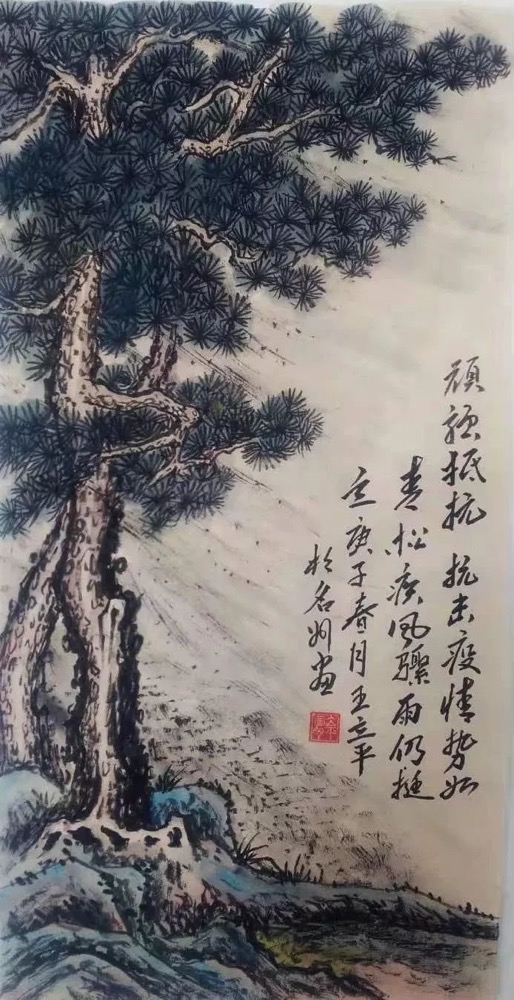 顽强抵抗 抗击疫情势如
青松疾风骤雨仍挺
立 庚子春月王立平
於名州画